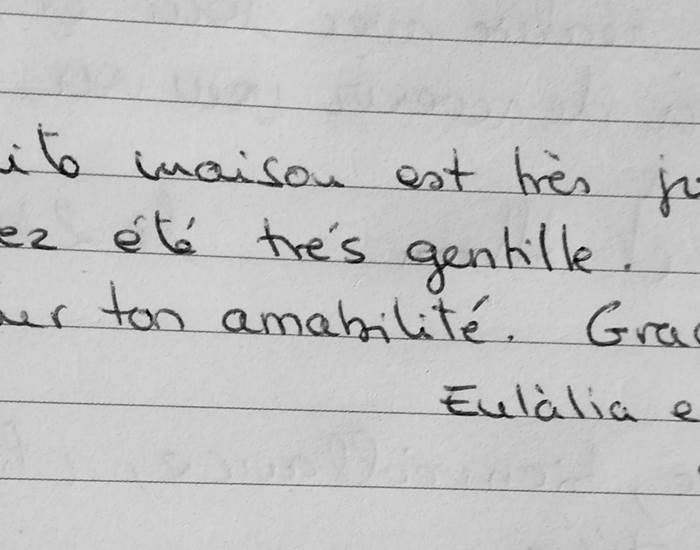 maison est très
ez été trés gentille.
ur ton amabilité. Grac
Eulàlia e